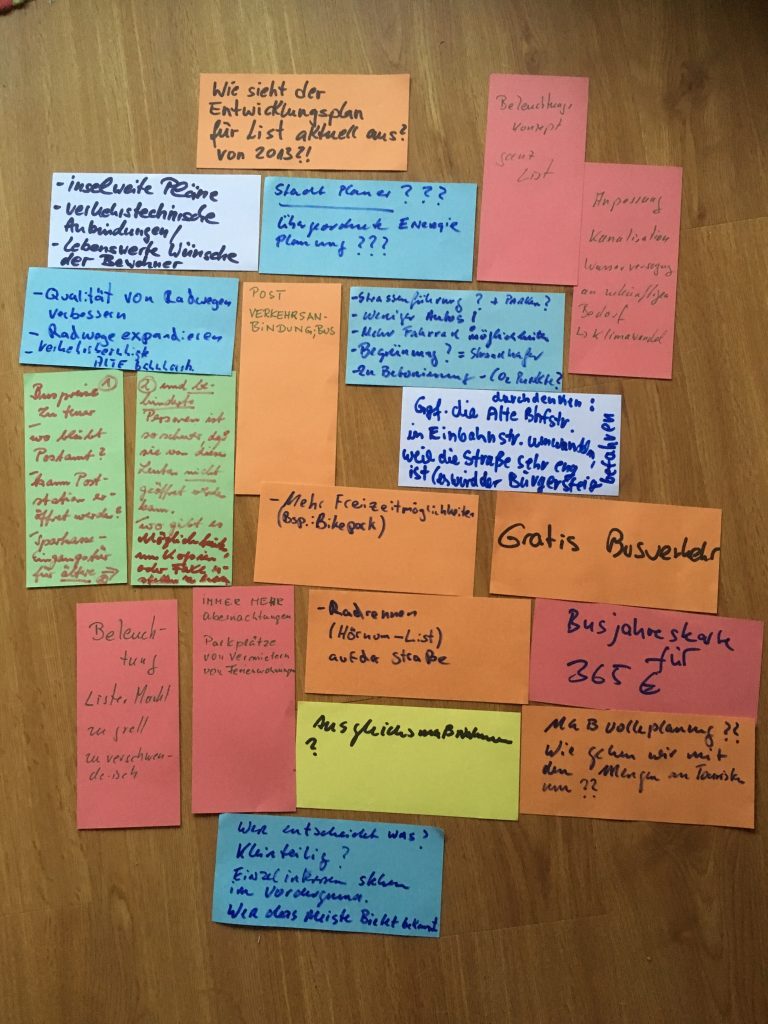 Wie sieht der
Entwicklungsplan
für List aktuell aus?
von 2013?!
Beleuchtungs
konzept
ganz
List
- inselweite Pläne
- verkehrstechnische
Anbindungen/
- Lebenswerte Wünsche
der Bewohner
Stadt Planer ? ? ?
übergeordnete Energie
Planung ???
Anpassung
Kanalisation
Wasserversorgung
an zukünftigen
Bedarf
↳ Klimawandel
- Qualität von Radwegen
verbessern
- Radwege expandieren
-
ALTE
POST
VERKEHRSAN-
BINDUNG, BUS
- Strassenführung ? + Parken ?
- Weniger Autos !
- Mehr Fahrrad möglichkeiten
- Begrünung ? = Strandhafer
- zu Betonierung - CO2 Punkte?
durchdenken:
Ggf. die Alte Bhfstr.
in Einbahnstr. umwandeln,
weil die Straße sehr eng
ist (es wird der Bürgersteig
befahren
Buspreise ①
zu teuer
-
wo bleibt
Postamt ?
-
kann Post-
station er-
öffnet werden?
-
Sparkasse-
Eingangstür
für ältere
② und be-
hinderte
Personen ist
so schwer, daß
sie von diesen
Leuten nicht
geöffnet werden
kann.
-
wo gibt es
Möglichkeit
um Kopien
oder Fakte zu
- Mehr Freizeitmöglichkeiten
(Bsp.: Bikepark)
Gratis Busverkehr
Beleuch-
tung
Lister Markt
zu grell
zu verschwen-
de-isch
IMMER MEHR
Übernachtungen
Parkplätze
von Vermietern
von Ferienwohnungen
- Radrennen
(Hörnum-List)
auf der Straße
Busjahreskarte
für
365 €
Ausgleichsmaßnahmen
?
Maßvolle planung ??
Wie gehen wir mit
den Mengen an Touristen
um ??
Wer entscheidet was?
Kleinteilig ?
Einzelinteressen stehen
im Vordergrund.
Wer das Meiste Bietet bekommt